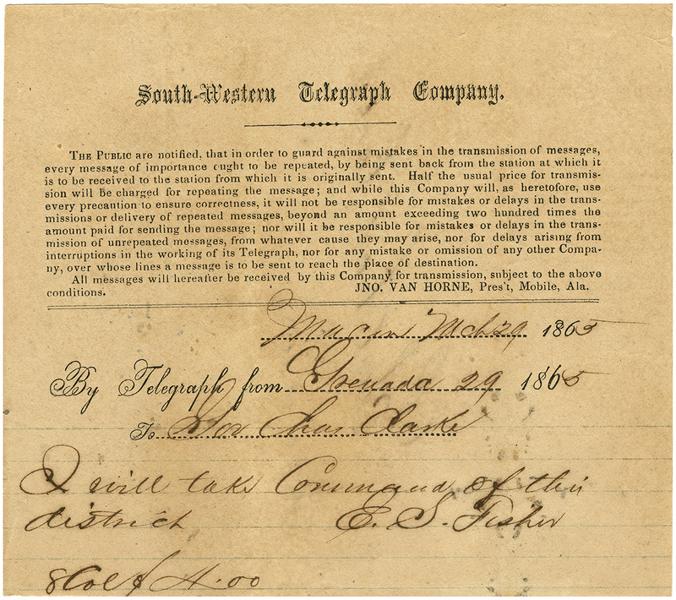 South-Western Telegraph Company.
THE PUBLIC are notified, that in order to guard against mistakes in the transmission of messages,
every message of importance ought to be repeated, by being sent back from the station at which it
is to be received to the station from which it is originally sent. Half the usual price for transmis-
sion will be charged for repeating the message; and while this Company will, as heretofore, use
every precaution to ensure correctness, it will not be responsible for mistakes or delays in the trans-
missions or delivery of repeated messages, beyond an amount exceeding two hundred times the
amount paid for sending the message; nor will it be responsible for mistakes or delays in the trans-
mission of unrepeated messages, from whatever cause they may arise, nor for delays arising from
interruptions in the working of its Telegraph, nor for any mistake or omission of any other Compa-
ny, over whose lines a message is to be sent to reach the place of destination.
All messages will hereafter be received by this Company for transmission, subject to the above
conditions. JNO. VAN HORNE, Pres't, Mobile, Ala.
Macon Mch 29 1865
By Telegraph from Grenada 29 1865
To Gov Chas Clarke
I will take Command of this
district E. S. Fisher
8 Col 4.00